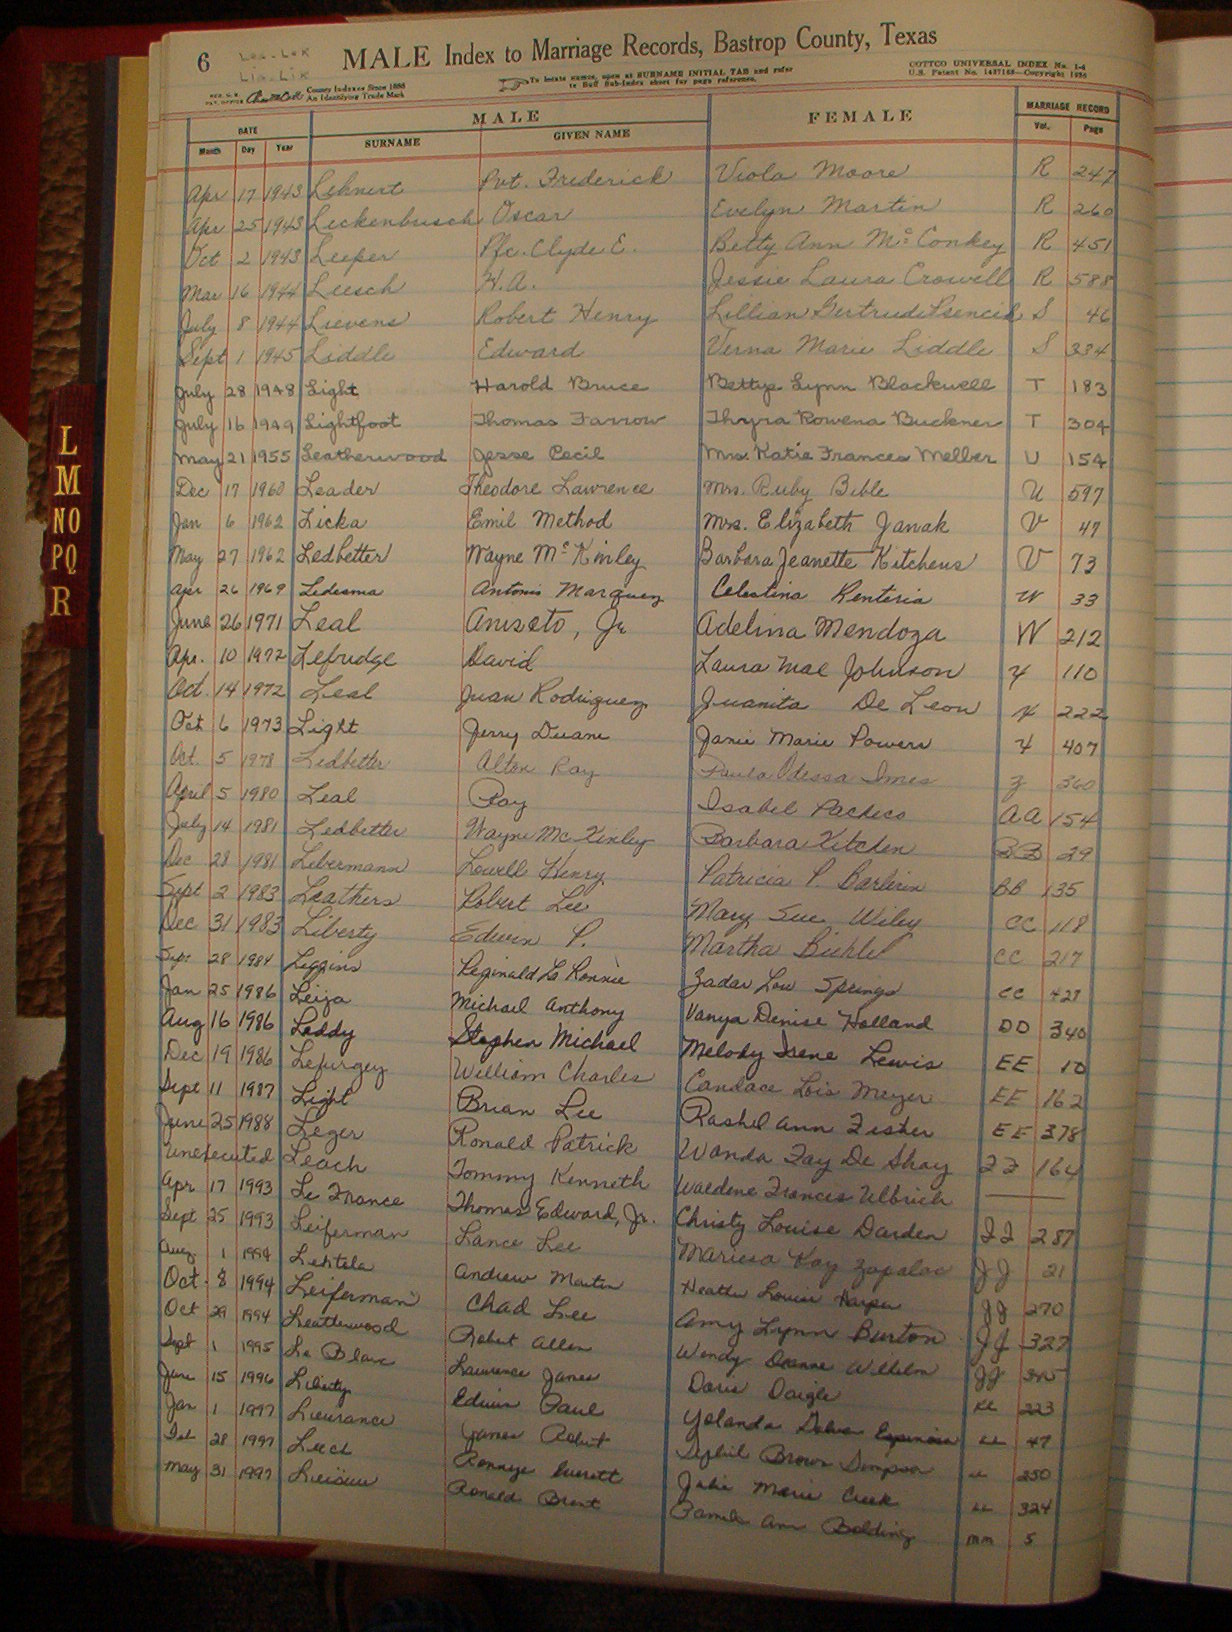 6 Lea-Lek
Lia-Lix
MALE Index to Marriage Records, Bastrop County, Texas
County Indexes Since 1888
An Identifying Trade Mark
To locate names, open at SURNAME INITIAL TAB and refer
to Buff Sub-Index sheet for page reference.
COTTCO UNIVERSAL INDEX No. 1-4
DATE MALE FEMALE MARRIAGE RECORD
Month Day Year SURNAME GIVEN NAME Vol. Page
Apr 17 1943 Lehnert Pvt. Frederick Viola Moore R 247
Apr 25 1943 Leckenbusch Oscar Evelyn Martin R 260
Oct 2 1943 Leeper Pfc. Clyde E. Betty Ann McConkey R 451
Mar 16 1944 Leesch H.A. Jessie Laura Crowell R 588
July 8 1944 Lievens Robert Henry Lillian Gertrude S 46
Sept 1 1945 Liddle Edward Verna Marie Liddle S 334
July 28 1948 Light Harold Bruce Bettye Lynn Blackwell T 183
July 16 1949 Lightfoot Thomas Farrow Thyra Rowena Buckner T 304
May 21 1955 Leatherwood Jesse Cecil Mrs. Katie Frances Melber U 154
Dec 17 1960 Leader Theodore Lawrence Mrs. Ruby Bible U 597
Jan 6 1962 Licka Emil Method Mrs. Elizabeth Janak V 47
May 27 1962 Ledbetter Wayne McKinley Barbara Jeanette Kitchens V 73
Apr 26 1969 Ledesma Antonio Marquez Celestina Renteria W 33
June 26 1971 Leal Aniseto, Jr. Adelina Mendoza W 212
Apr. 10 1972 Lefridge David Laura Mae Johnson Y 110
Oct. 14 1972 Leal Juan Rodriguez Juanita De Leon Y 222
Oct 6 1973 Light Jerry Duane Janie Marie Powers Y 407
Oct. 5 1978 Ledbetter Alton Ray Paula Odessa Imes Z 360
April 5 1980 Leal Ray Isabel Pacheco AA 154
July 14 1981 Ledbetter Wayne McKinley Barbara Kitchen BB 29
Dec 28 1981 Lebermann Lowell Henry Patricia P. BB 135
Sept 2 1983 Leathers Robert Lee Mary Sue Wiley CC 118
Dec 31 1983 Liberty Edwin P. Martha Biehle CC 217
Sept 28 1984 Liggins Reginald La Ronnie Zadar Lou Springs CC 427
Jan 25 1986 Leija Michael Anthony Vanya Denise Holland DD 340
Aug 16 1986 Leddy Stephen Michael Melody Irene Lewis EE 10
Dec 19 1986 Lepurgey William Charles Candace Lois Meyer EE 162
Sept 11 1987 Light Brian Lee Rashel Ann Fisher EE 378
June 25 1988 Leger Ronald Patrick Wanda Fay De Shay FF 164
Unexecuted Leach Tommy Kenneth Waldene Frances Ulbrich
Apr 17 1993 Le France Thomas Edward, Jr. Christy Louise Darden II 287
Sept 25 1993 Leiferman Lance Lee Mariesa Kay Zapalac JJ 21
Aug 1 1994 Lehtela Andrew Martin Heather Louise Harper JJ 270
Oct. 8 1994 Leiferman Chad Lee Amy Lynn Burton JJ 327
Oct 29 1994 Leatherwood Robert Allen Wendy Deanne Wilhelm JJ 345
Sept 1 1995 Le Blanc Lawrence James Doris Daigle KK 223
June 15 1996 Liberty Edwin Paul Yolanda Espinosa LL 47
Jan 1 1997 Lieurance James Robert Brown Simpson LL 250
Feb 28 1997 Leech Ronnye Everett Julie Marie Creek LL 324
May 31 1997 Ronald Brent Pamela Ann Bolding MM 5
L
M
NO
PQ
R